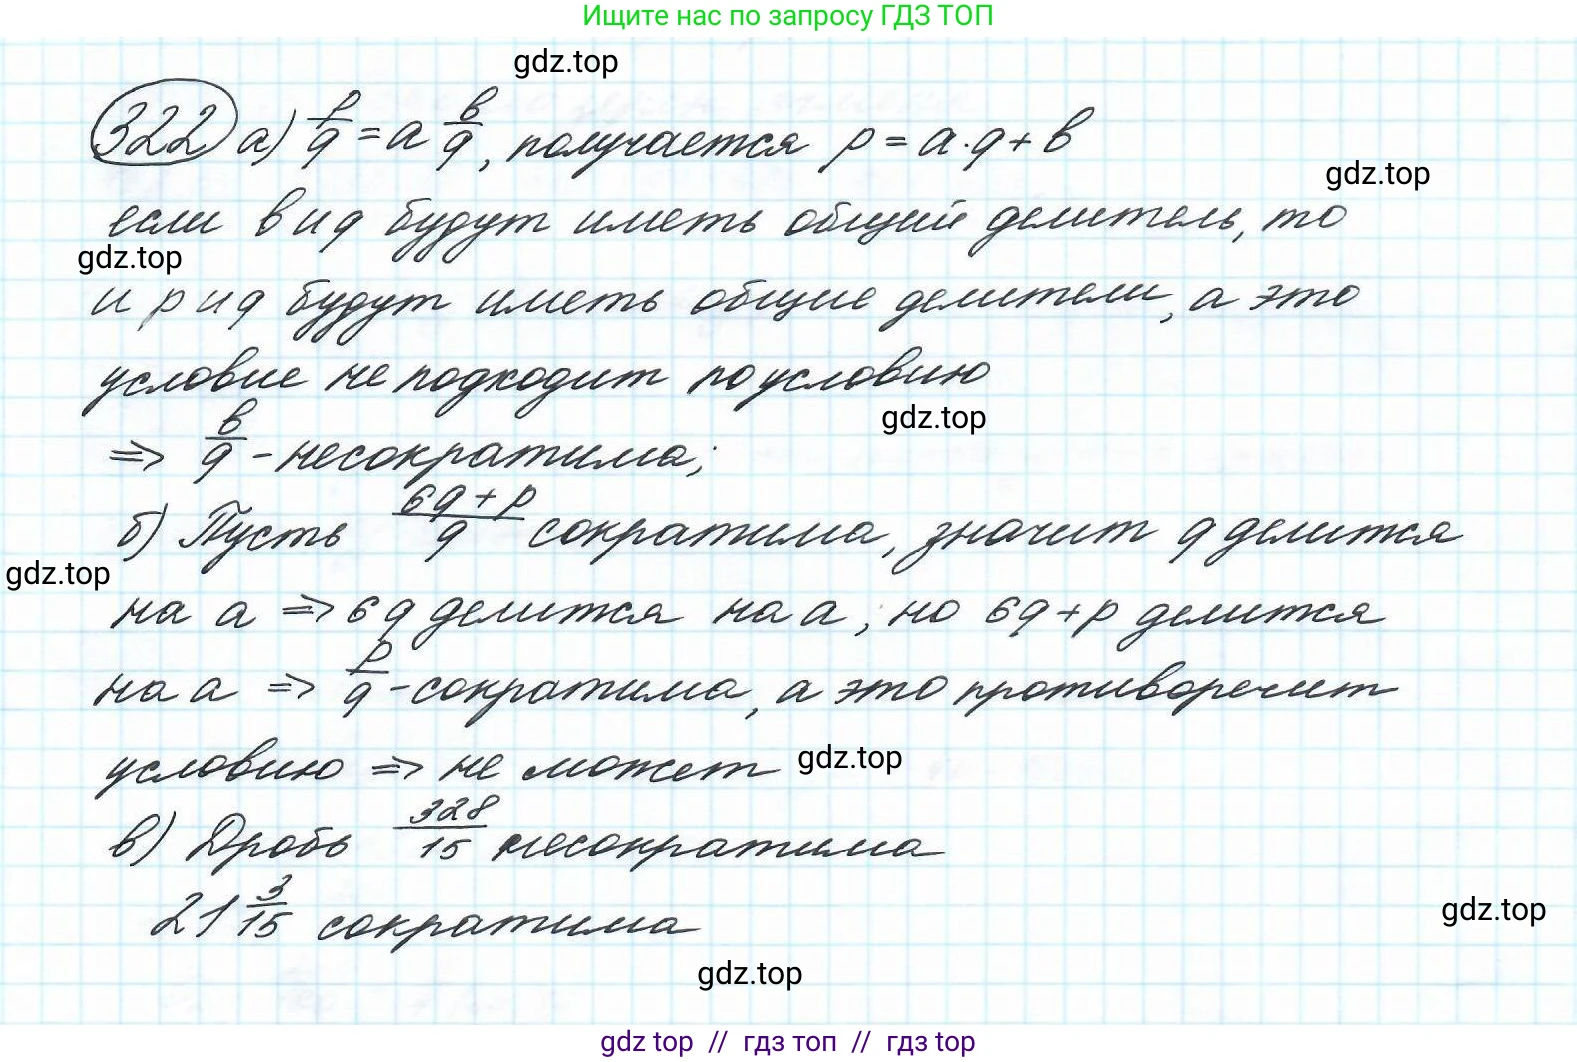 Ищите нас по запросу ГДЗ ТОП
gdz.top
322 а) p/q = a b/q, получается p = a·q + b
gdz.top
если b и q будут иметь общий делитель, то
gdz.top
и p и q будут иметь общие делители, а это
условие не подходит по условию
gdz.top
=> b/q - несократима;
б) Пусть 6q + p/q сократима, значит q делится
gdz.top
на a => 6q делится на a, но 6q + p делится
на a => p/q - сократима, а это противоречит
условию => не может
gdz.top
в) Дробь 328/15 несократима
21 3/15 сократима
gdz.top
gdz.top
gdz top // гдз топ // gdz top